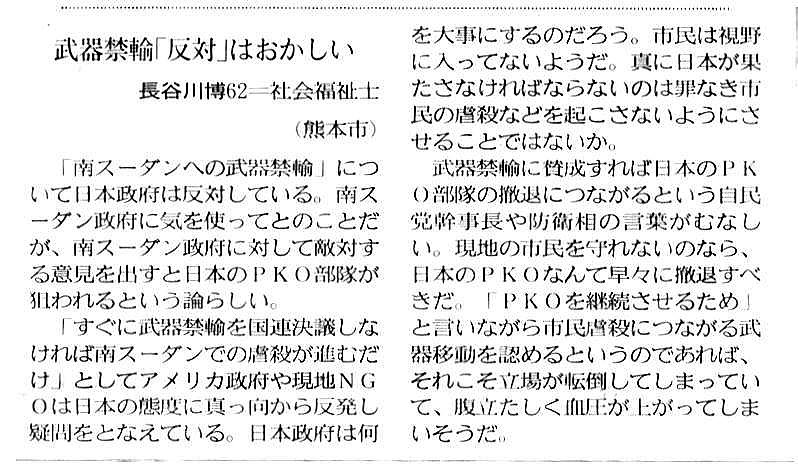 武器禁輸「反対」はおかしい
長谷川博62＝社会福祉士
（熊本市）
「南スーダンへの武器禁輸」につ
いて日本政府は反対している。南ス
ーダン政府に気を使ってとのことだ
が、南スーダン政府に対して敵対す
る意見を出すと日本のＰＫＯ部隊が
狙われるという論らしい。
「すぐに武器禁輸を国連決議しな
ければ南スーダンでの虐殺が進むだ
け」としてアメリカ政府や現地ＮＧ
Ｏは日本の態度に真っ向から反発し
疑問をとなえている。日本政府は何
を大事にするのだろう。市民は視野
に入ってないようだ。真に日本が果
たさなければならないのは罪なき市
民の虐殺などを起こさないようにさ
せることではないか。
武器禁輸に賛成すれば日本のＰＫ
Ｏ部隊の撤退につながるという自民
党幹事長や防衛相の言葉がむなし
い。現地の市民を守れないのなら、
日本のＰＫＯなんて早々に撤退すべ
きだ。「ＰＫＯを継続させるため」
と言いながら市民虐殺につながる武
器移動を認めるというのであれば、
それこそ立場が転倒してしまってい
て、腹立たしく血圧が上がってしま
いそうだ。